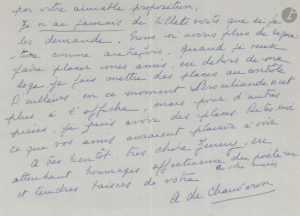 par votre aimable proposition.
Je n'ai jamais de billets verts que je
les demande. Nous n'avons plus de
comme autrefois. Quand je veux
faire placer mes amis, en dehors de ma
loge je fais mettre des places au contrôle
D'ailleurs, en ce moment Brocéliande n'est
plus à l'affiche mais pour d'autres
pièces, je puis avoir des places. Dites moi
ce que vos amis auraient plaisir à voir
A très bientôt, très chère Jenny, en
attendant, hommages affectueux du poète
et tendres baisers de votre
A de Chauveron